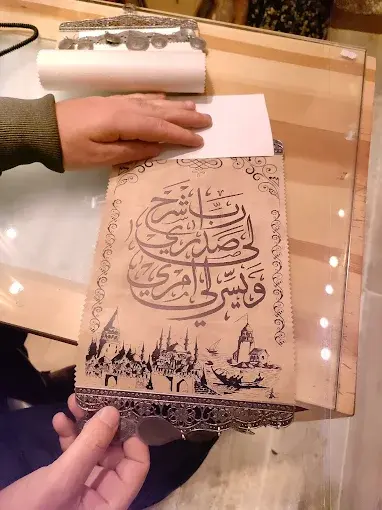 ربّ اشرح
لي صدري
ويسّر لي أمري